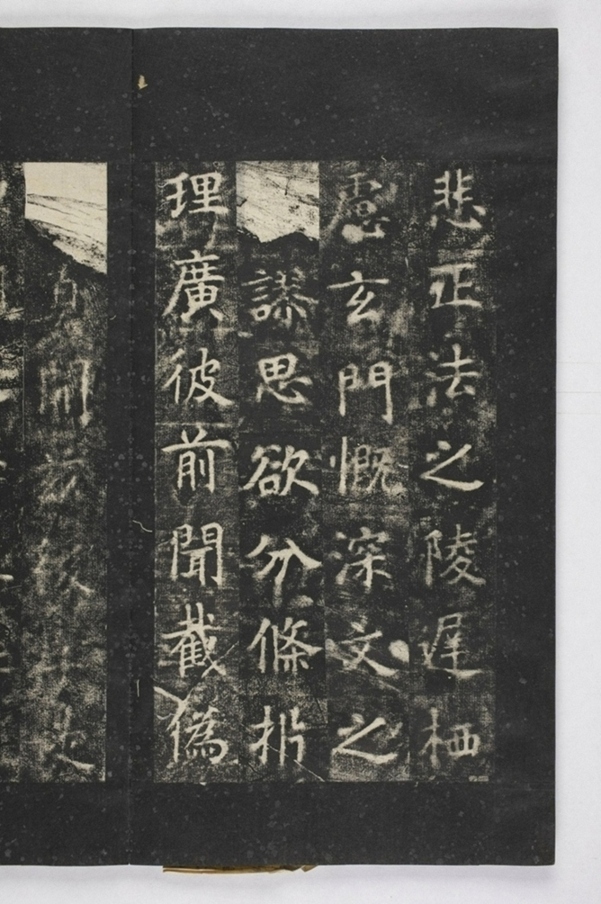 悲正法之陵遲栖
慮玄門慨深文之
謬思欲分條析
理廣彼前聞截僞
真開兹後學是